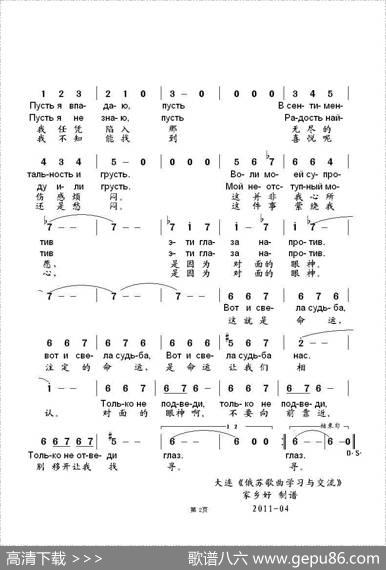 1 2 3 | 2 1 0 | 3 – 0 | 0 0 0 | 3 4 5
Пусть я впа- даю, пусть В сен- ти- мен-
Пусть я не знаю, пусть Ра-дость най-
我 任凭 陷入 那 无尽的
我 不知 能找 到 喜悦呢
4 3 4 | 5 – 0 | 0 0 0 | 5 6 ♭7 | 6 6 4
таль-ность и грусть. Во-ли мо-ей су-про-
ду и-ли грусть. Мой не-отс-туп-ный мо-
伤感烦 闷。 这并非 我心所
还是愁 闷。 这件事 萦绕我
♭7 – – | 7 – – | ♭7 i 7 | 6 ♭7 6 | 7 – –
тив э-ти гла- за на- про-тив.
тив э-ти гла- за на- про-тив.
愿, 是因为 对面的 眼神。
心, 是因为 对面的 眼神。
7 – – | 7 – – | 7 – – | 6 6 7 | 6 7 6
Вот и све- ла судь-ба,
这就是 命运,
6 6 7 | 6 7 6 | 6 6 7 | #5 6 7 | 2 – –
вот и све- ла судь-ба, Вот и све- ла судь-ба нас.
注定的 命运, 是命运 让我们 相
1 – – | 6 6 7 6 7 | 6 7 6 | 6 6 7 6 7 | 6 7 6
Толь-ко не под-ве-ди, толь-ко не под-ве-ди,
认。 对面的 眼神啊, 不要向 前靠近,
6 6 7 6 7 | #5 – – | 6 – – | 6 – – | 6 – 0
Толь-ко не от-ве-ди глаз. глаз.
别移开让我 找 寻。 寻。
1 2
结束句
D·S·
大连《俄苏歌曲学习与交流》
家乡好 制谱
第2页
2011-04
高清下载 >>>> 歌谱八六 www.gepu86.com